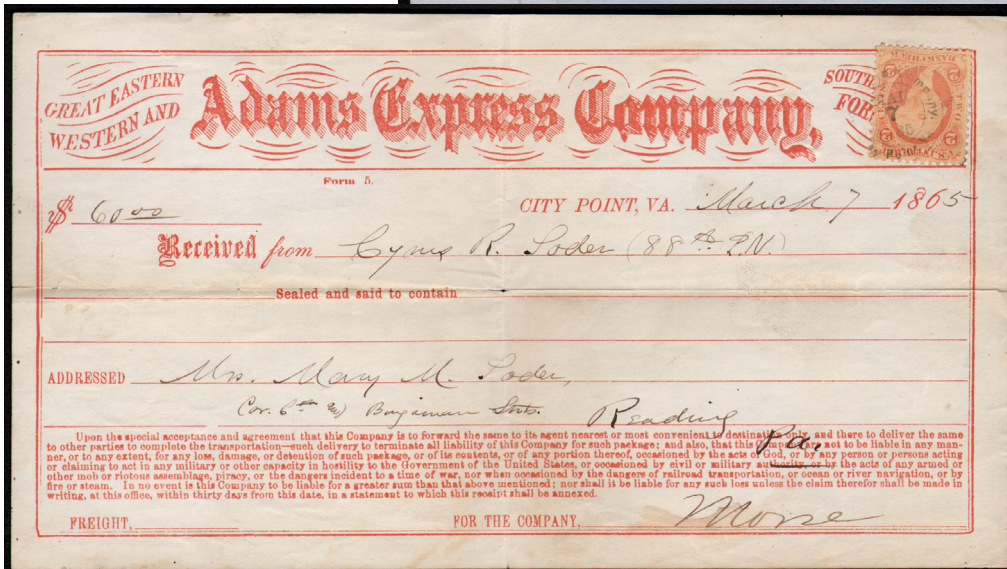 GREAT EASTERN
WESTERN AND
Adams Express Company,
SOUTH
FOR
Form 5.
$ 60 00
CITY POINT, VA. March 7 1865
Received from Cyrus R. Loder (88th P.V.)
Sealed and said to contain
ADDRESSED Mrs. Mary M. Loder,
Cor. 6th and Bingaman Sts. Reading
Pa.
Upon the special acceptance and agreement that this Company is to forward the same to its agent nearest or most convenient to destination only, and there to deliver the same
to other parties to complete the transportation—such delivery to terminate all liability of this Company for such package; and also, that this Company are not to be liable in any man-
ner, or to any extent, for any loss, damage, or detention of such package, or of its contents, or of any portion thereof, occasioned by the acts of God, or by any person or persons acting
or claiming to act in any military or other capacity in hostility to the Government of the United States, or occasioned by civil or military authority, or by the acts of any armed or
other mob or riotous assemblage, piracy, or the dangers incident to a time of war, nor when occasioned by the dangers of railroad transportation, or ocean or river navigation, or by
fire or steam. In no event is this Company to be liable for a greater sum than that above mentioned; nor shall it be liable for any such loss unless the claim therefor shall be made in
writing, at this office, within thirty days from this date, in a statement to which this receipt shall be annexed.
FREIGHT,
FOR THE COMPANY, Morse